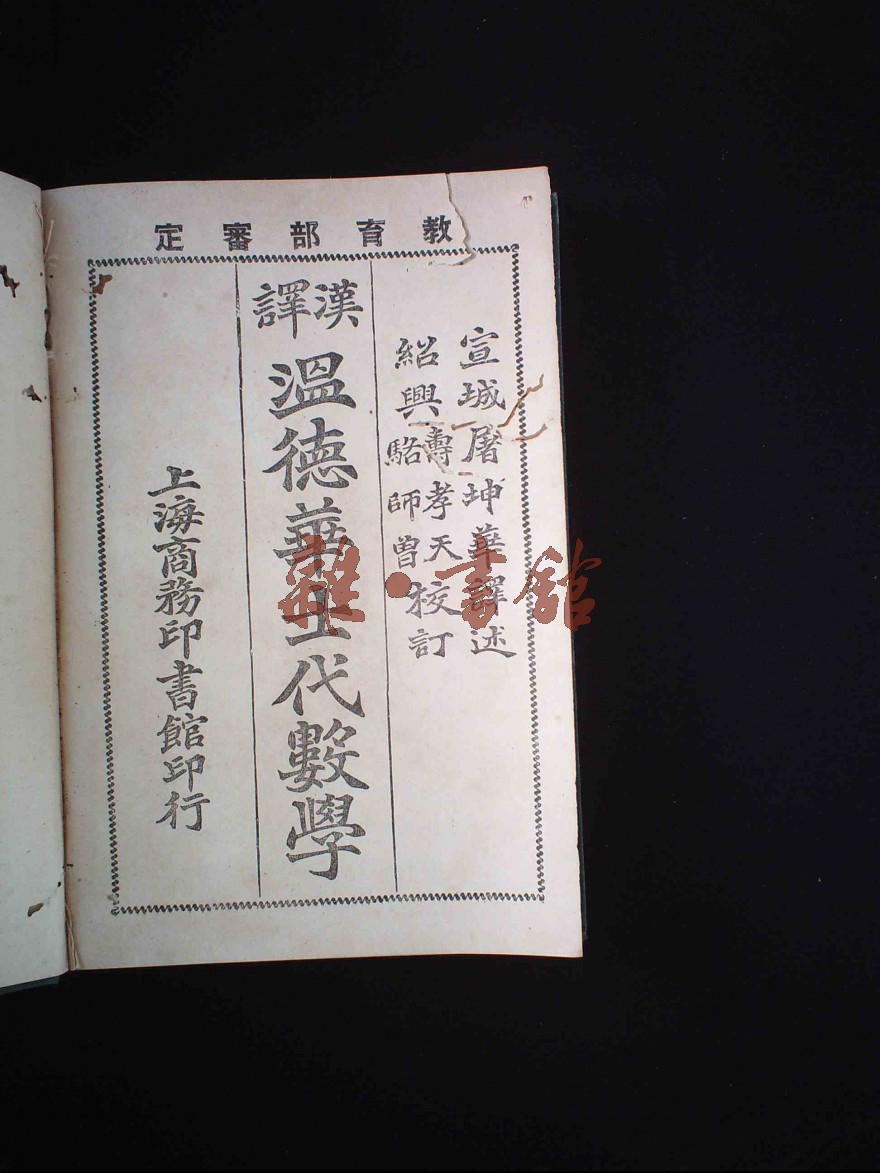 教育部審定
宣城屠坤華譯述
紹興
壽孝天
駱師曾
校訂
漢譯
溫德華士代數學
上海商務印書館印行
雜·書館